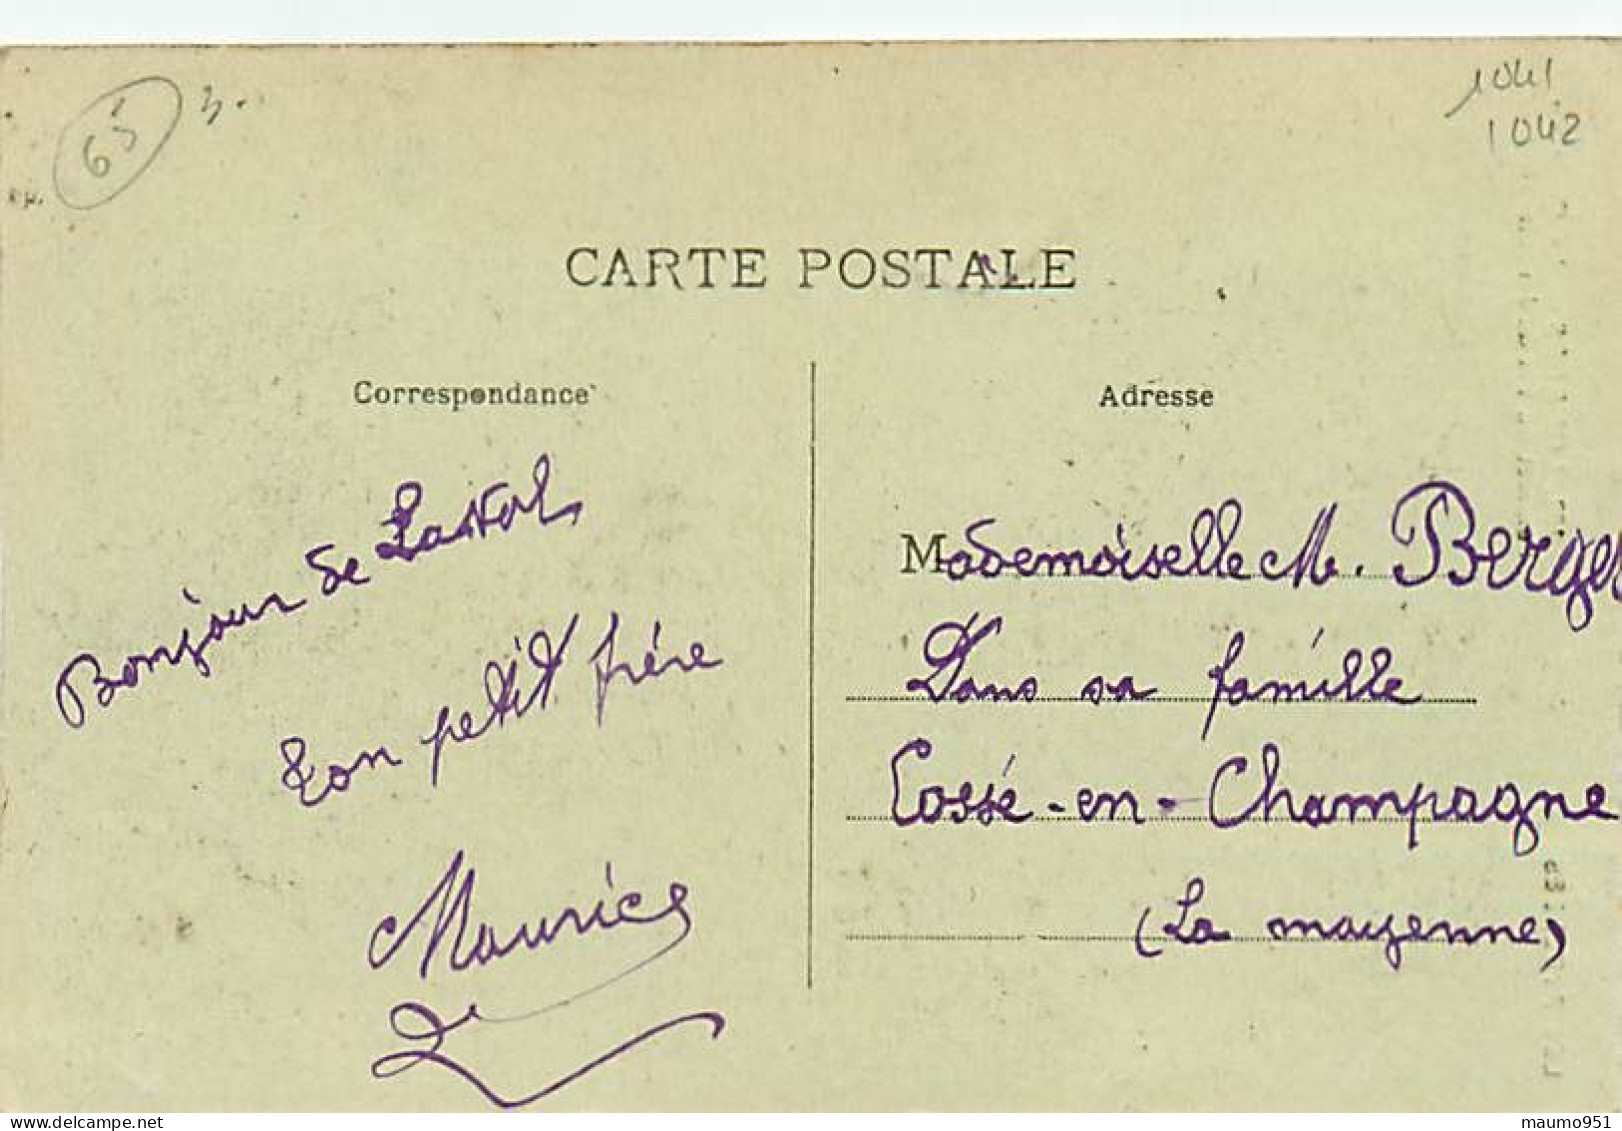 65
3.
1041
1042
CARTE POSTALE
Correspondance
Adresse
Bonjour de
Ton petit frére
Maurice
Mademoiselle M. Berger
Dans sa famille
Cossé-en-Champagne
(La mayenne)
delcampe.net
maumo951